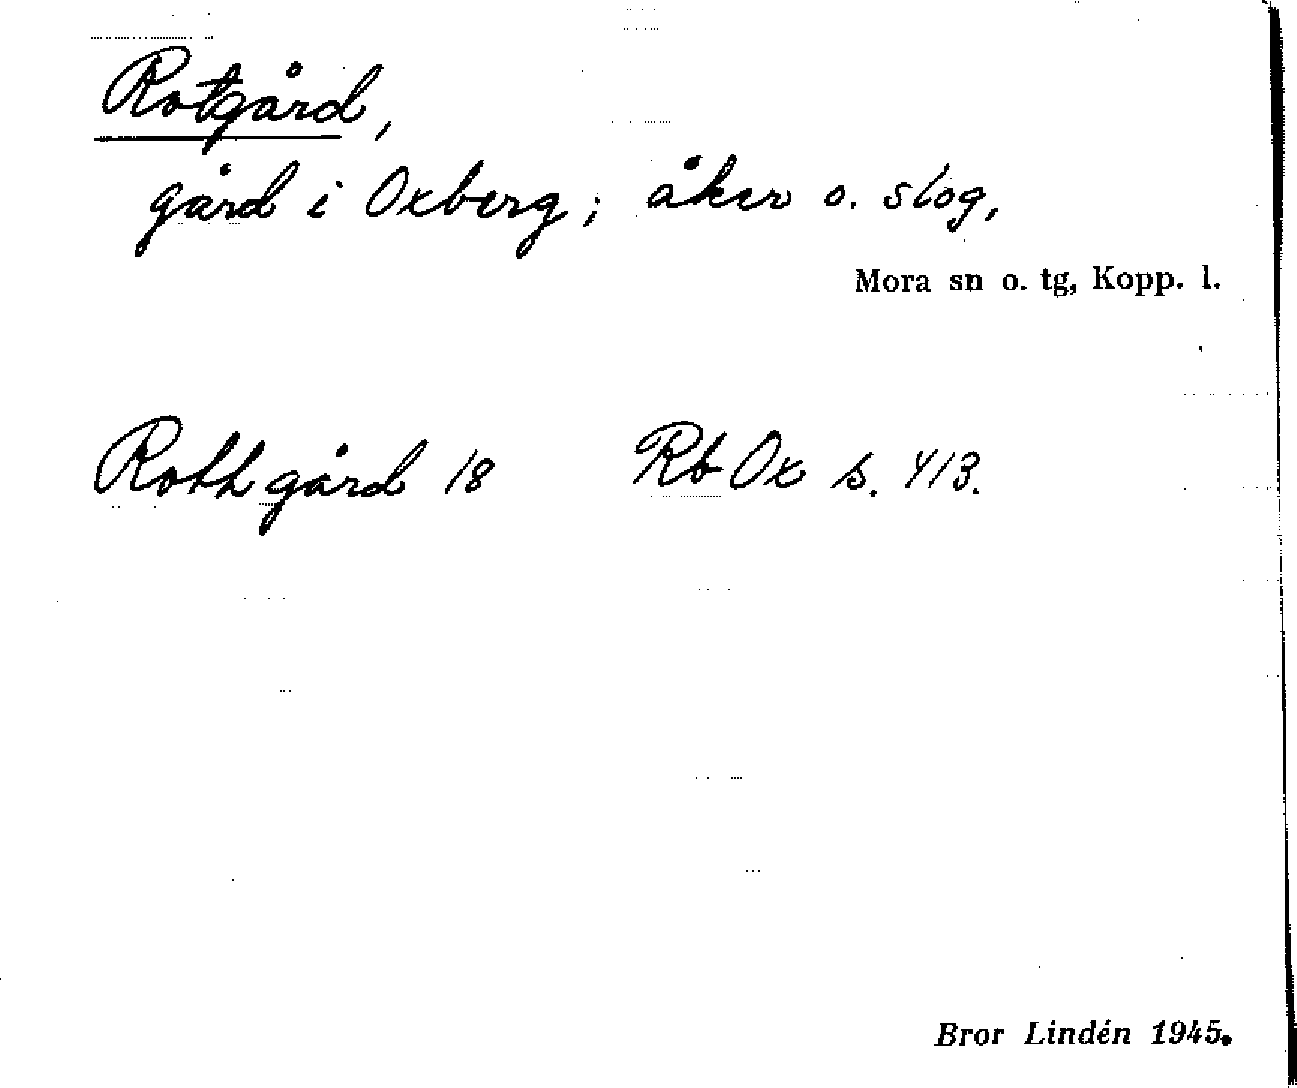 Rotgård,
gård i Oxberg; åker o. slog,
Mora sn o. tg, Kopp. l.
Rothgård 18 Rb Ox s. 413.
Bror Lindén 1945.